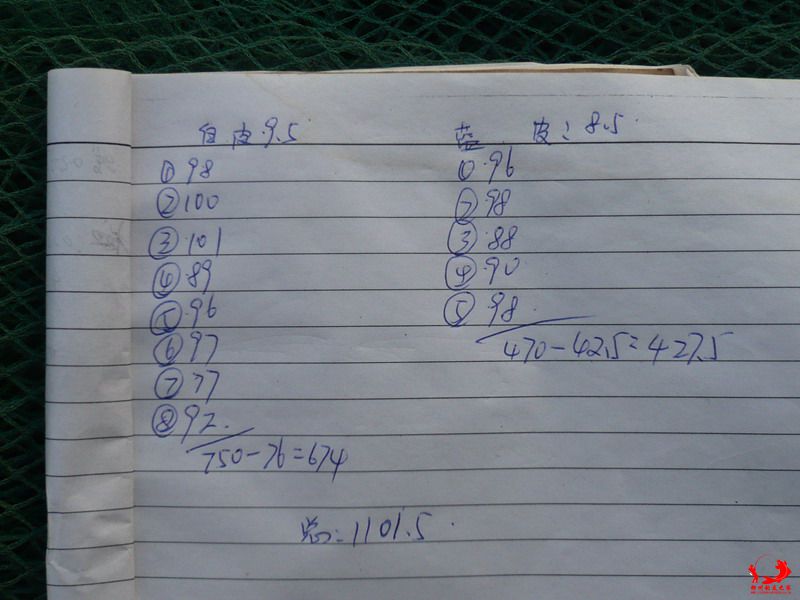 白皮:9.5
①98
②100
③101
④89
⑤96
⑥97
⑦77
⑧92
750-76=674
蓝 皮:8.5
①96
②98
③88
④90
⑤98
470-42.5=427.5
总:1101.5